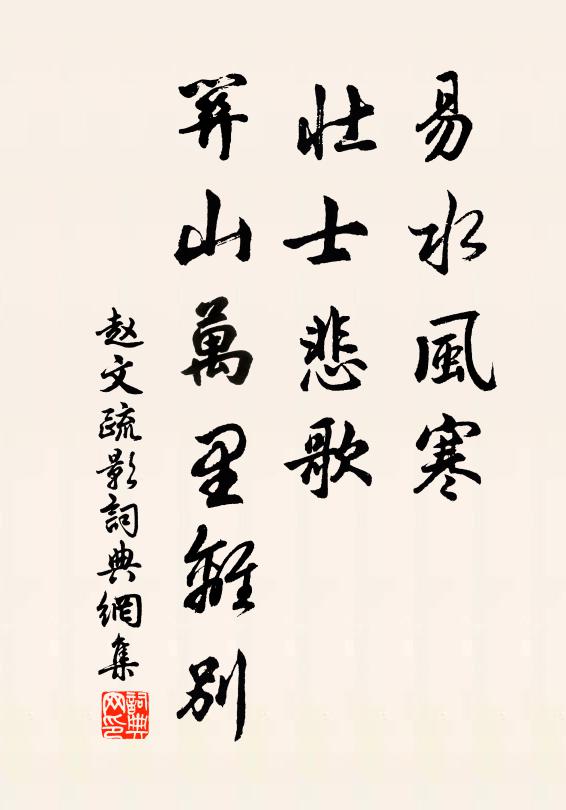 易水風寒
壯士悲歌
關山萬里離別
赵文疏影詞典網集
詞典網印